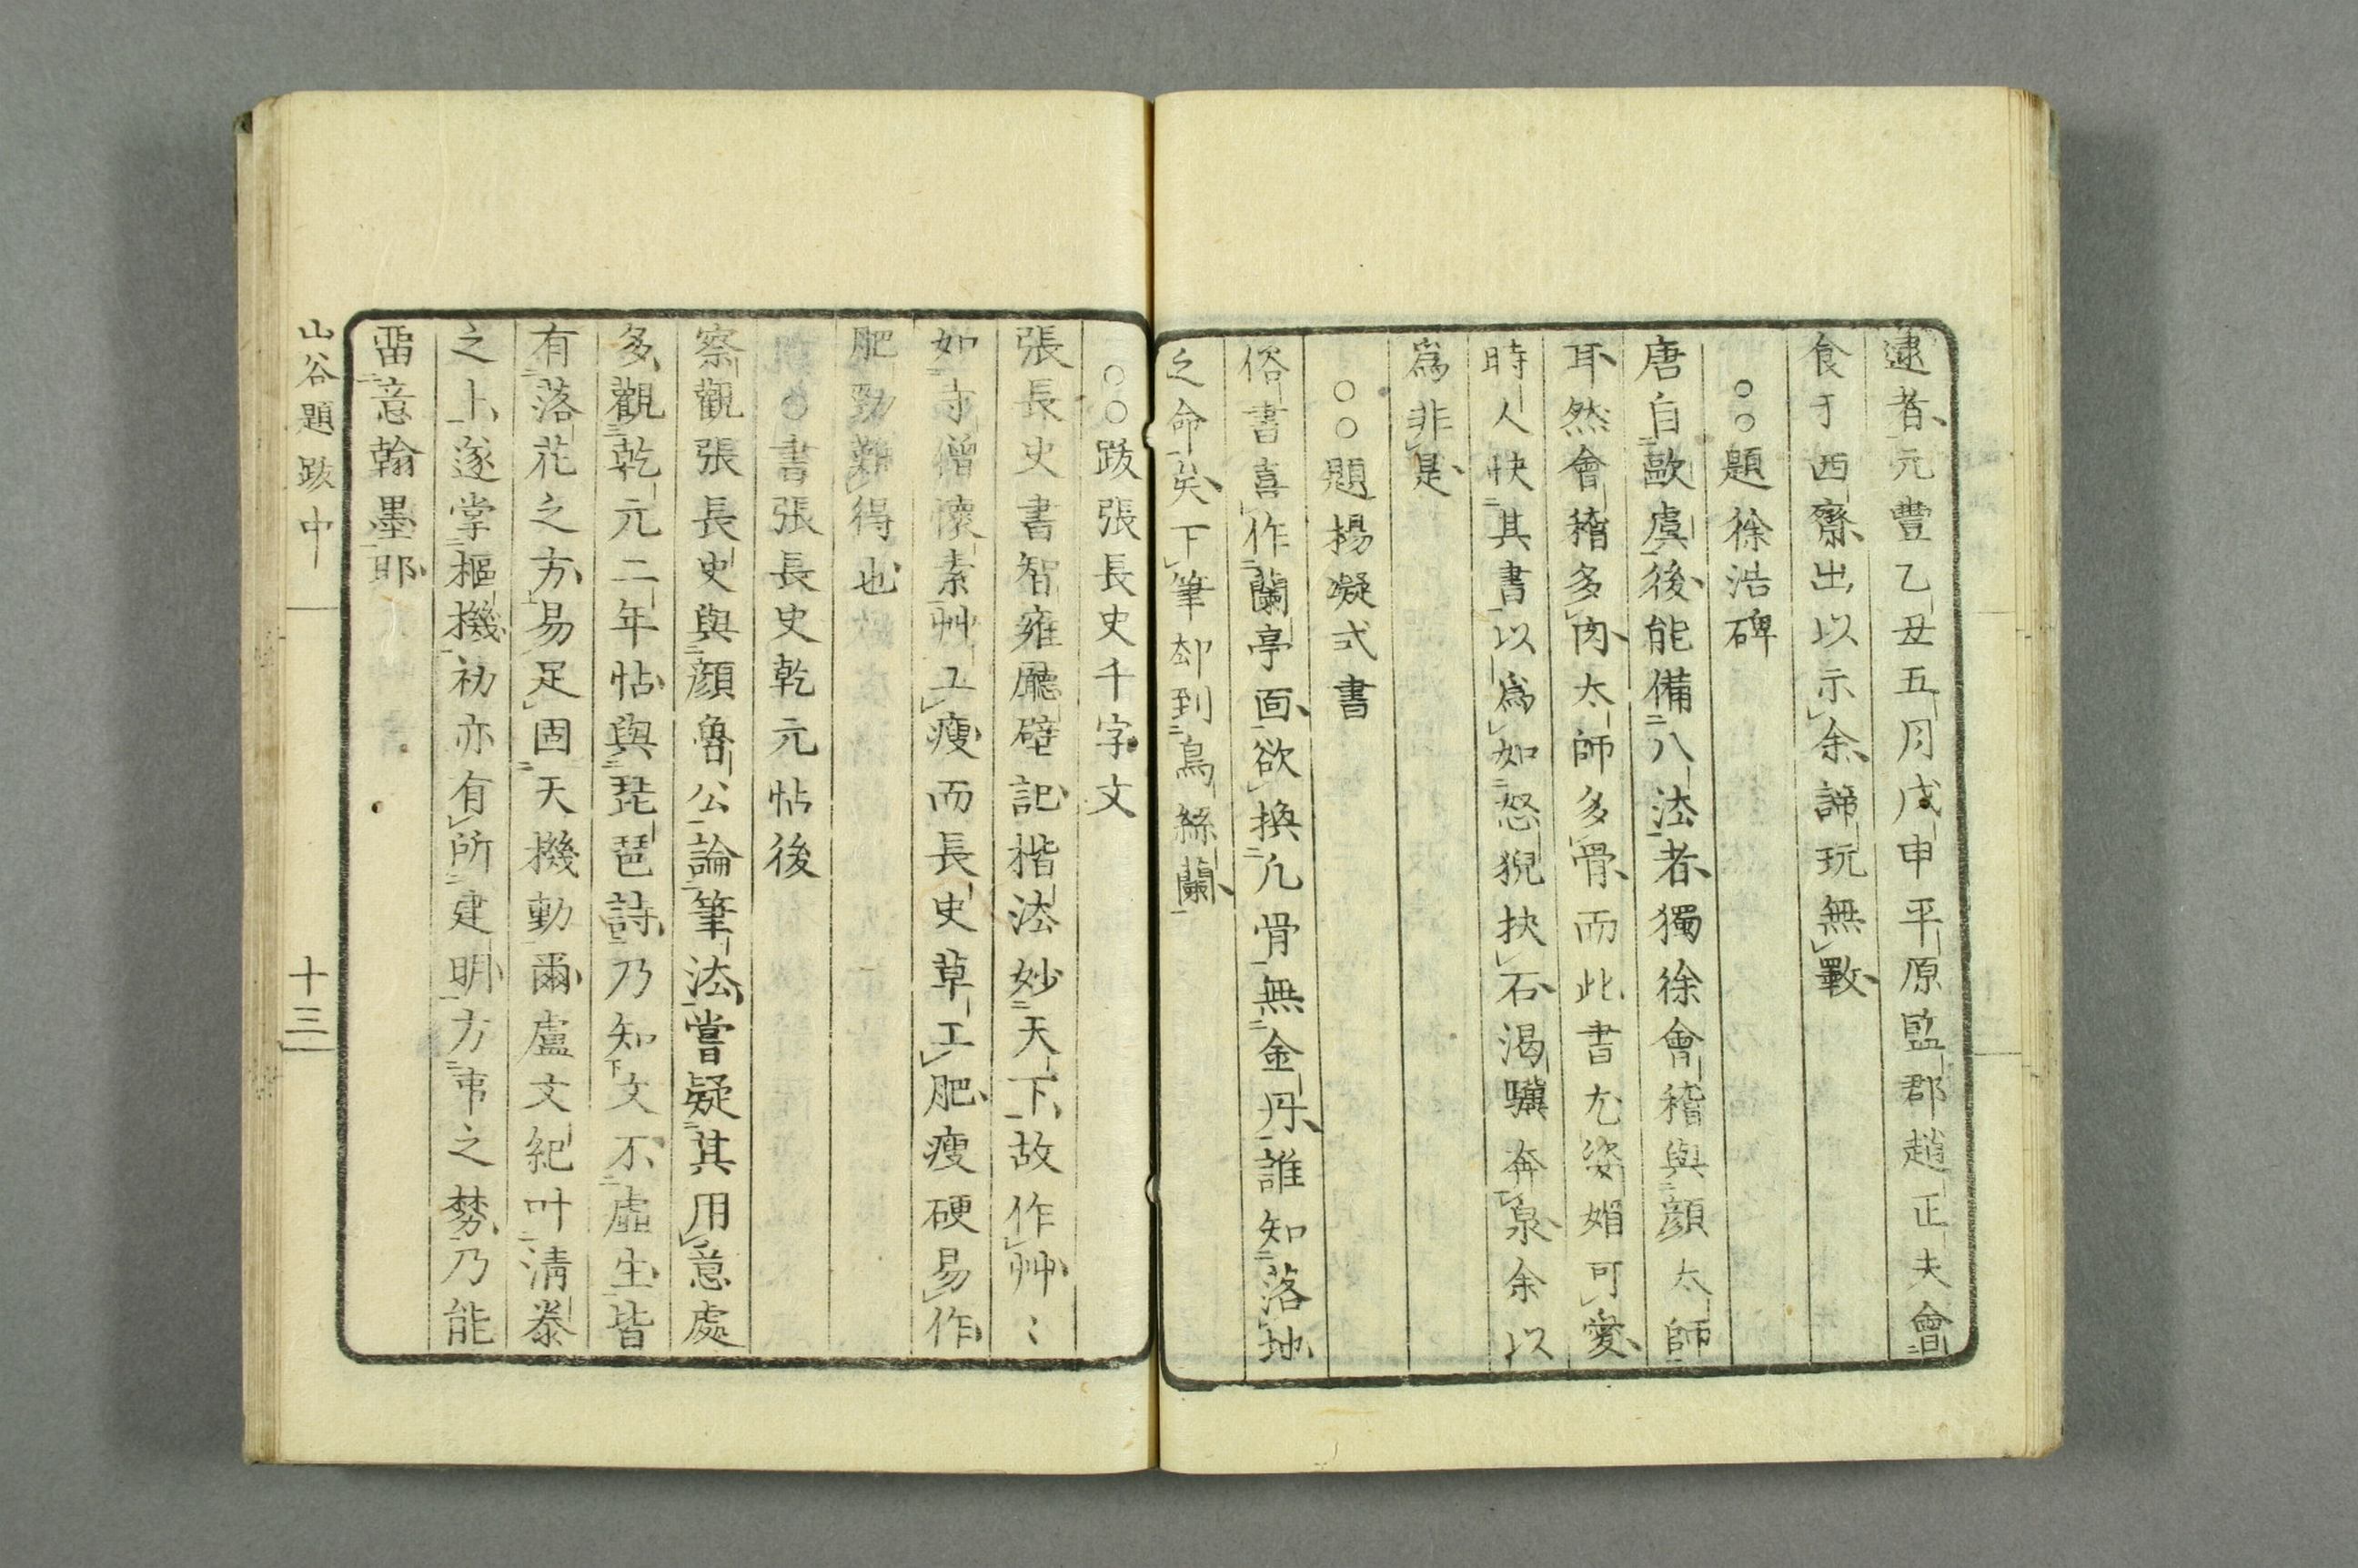 逮者元豐乙丑五月戊申平原監郡趙正夫會
食于西齋出以示余諦玩無斁
○○題徐浩碑
唐自歐虞後能備八法者獨徐會稽與顔太師
耳然會稽多肉太師多骨而此書尤姿媚可愛
時人快其書以爲如怒猊抉石渴驥奔泉余以
爲非是
○○題楊凝式書
俗書喜作蘭亭面欲換凡骨無金丹誰知落地
之命矣下筆却到烏絲闌
○○跋張長史千字文
張長史書智雍廳壁記楷法妙天下故作艸〻
如寺僧懷素艸工瘦而長史草工肥瘦硬易作
肥勁難得也
○○書張長史乾元帖後
察觀張長史與顔魯公論筆法嘗疑其用意處
多觀乾元二年帖與琵琶詩乃知文不虛生皆
有落花之方易足固天機動爾盧文紀叶清泰
之上遂掌樞機初亦有所建明方帝之㷌乃能
畱意翰墨耶
山谷題跋中 十三